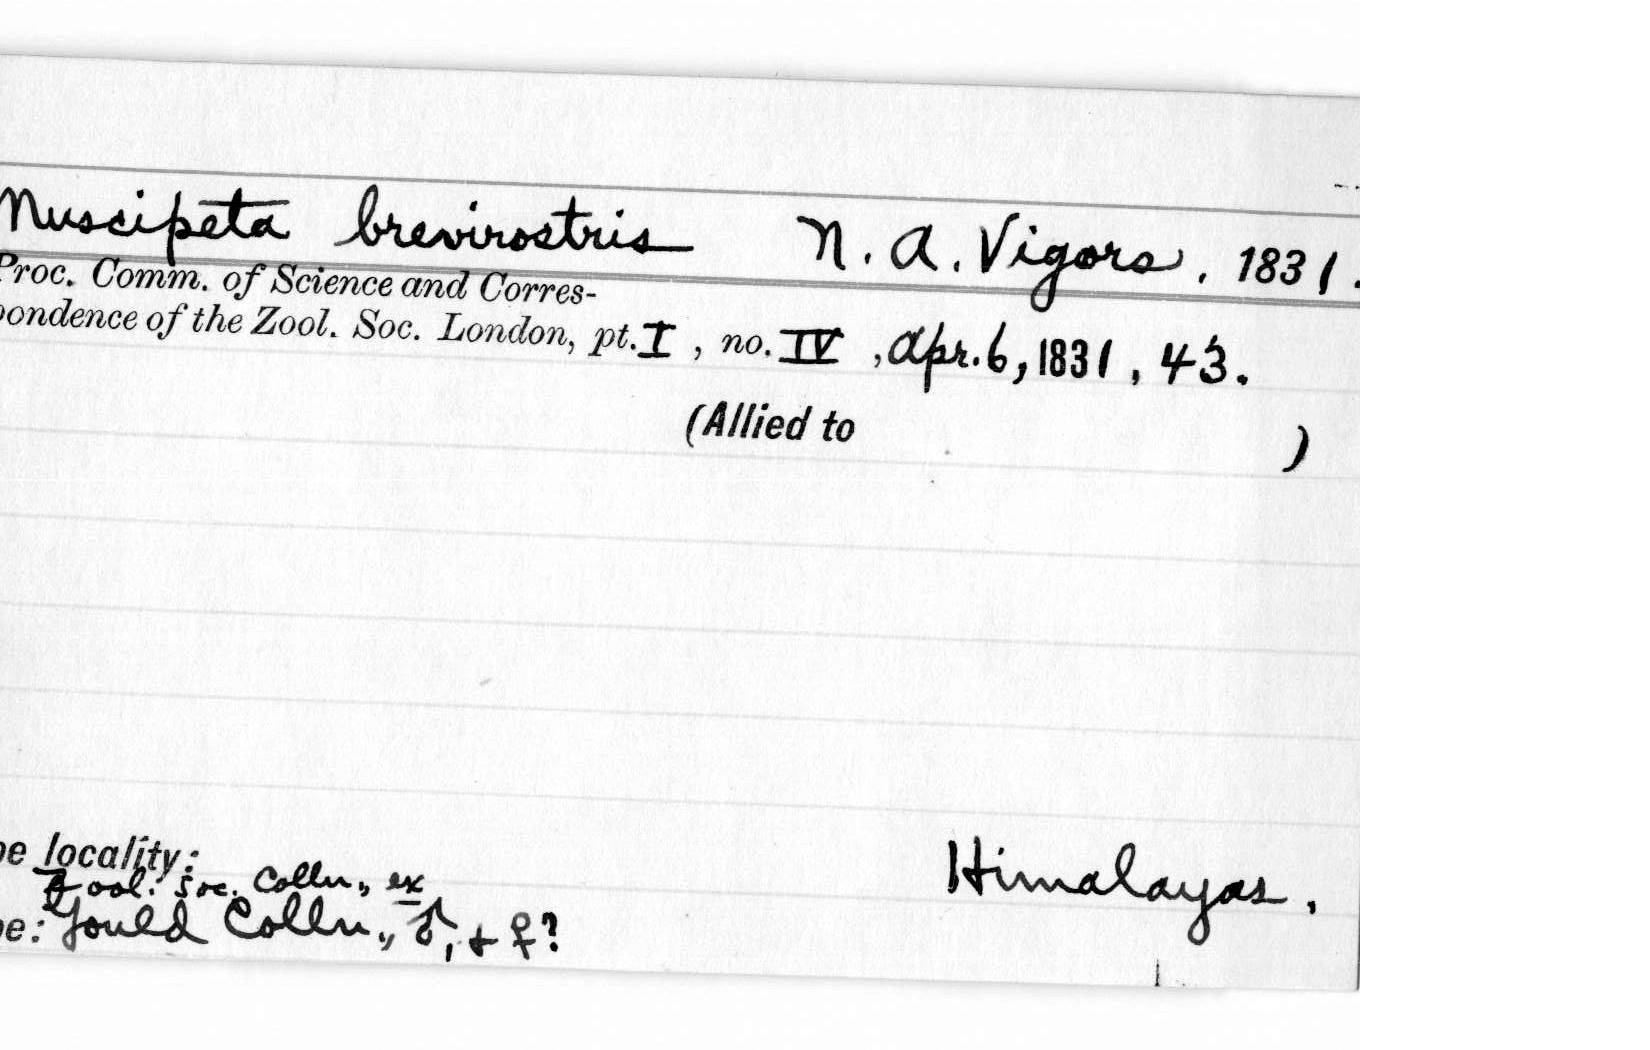 Muscipeta brevirostris N. A. Vigors, 1831.
Proc. Comm. of Science and Corres-
pondence of the Zool. Soc. London, pt. I, no. IV, Apr. 6, 1831, 43.
(Allied to )
pe locality: Himalayas,
Zool. Soc. Colln., ex
pe: Gould Colln., ♂, + ♀?